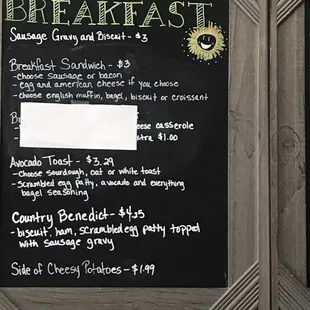 BREAKFAST
Sausage Gravy and Biscuit - $3
Breakfast Sandwich - $3
- choose sausage or bacon
- egg and american cheese if you choose
- choose english muffin, bagel, biscuit or croissant
casserole
$1.00
Avocado Toast - $3.29
- choose sourdough, oat or white toast
- scrambled egg patty, avocado and everything
bagel seasoning
Country Benedict - $4.25
- biscuit, ham, scrambled egg patty topped
with sausage gravy
Side of Cheesy Potatoes - $1.99